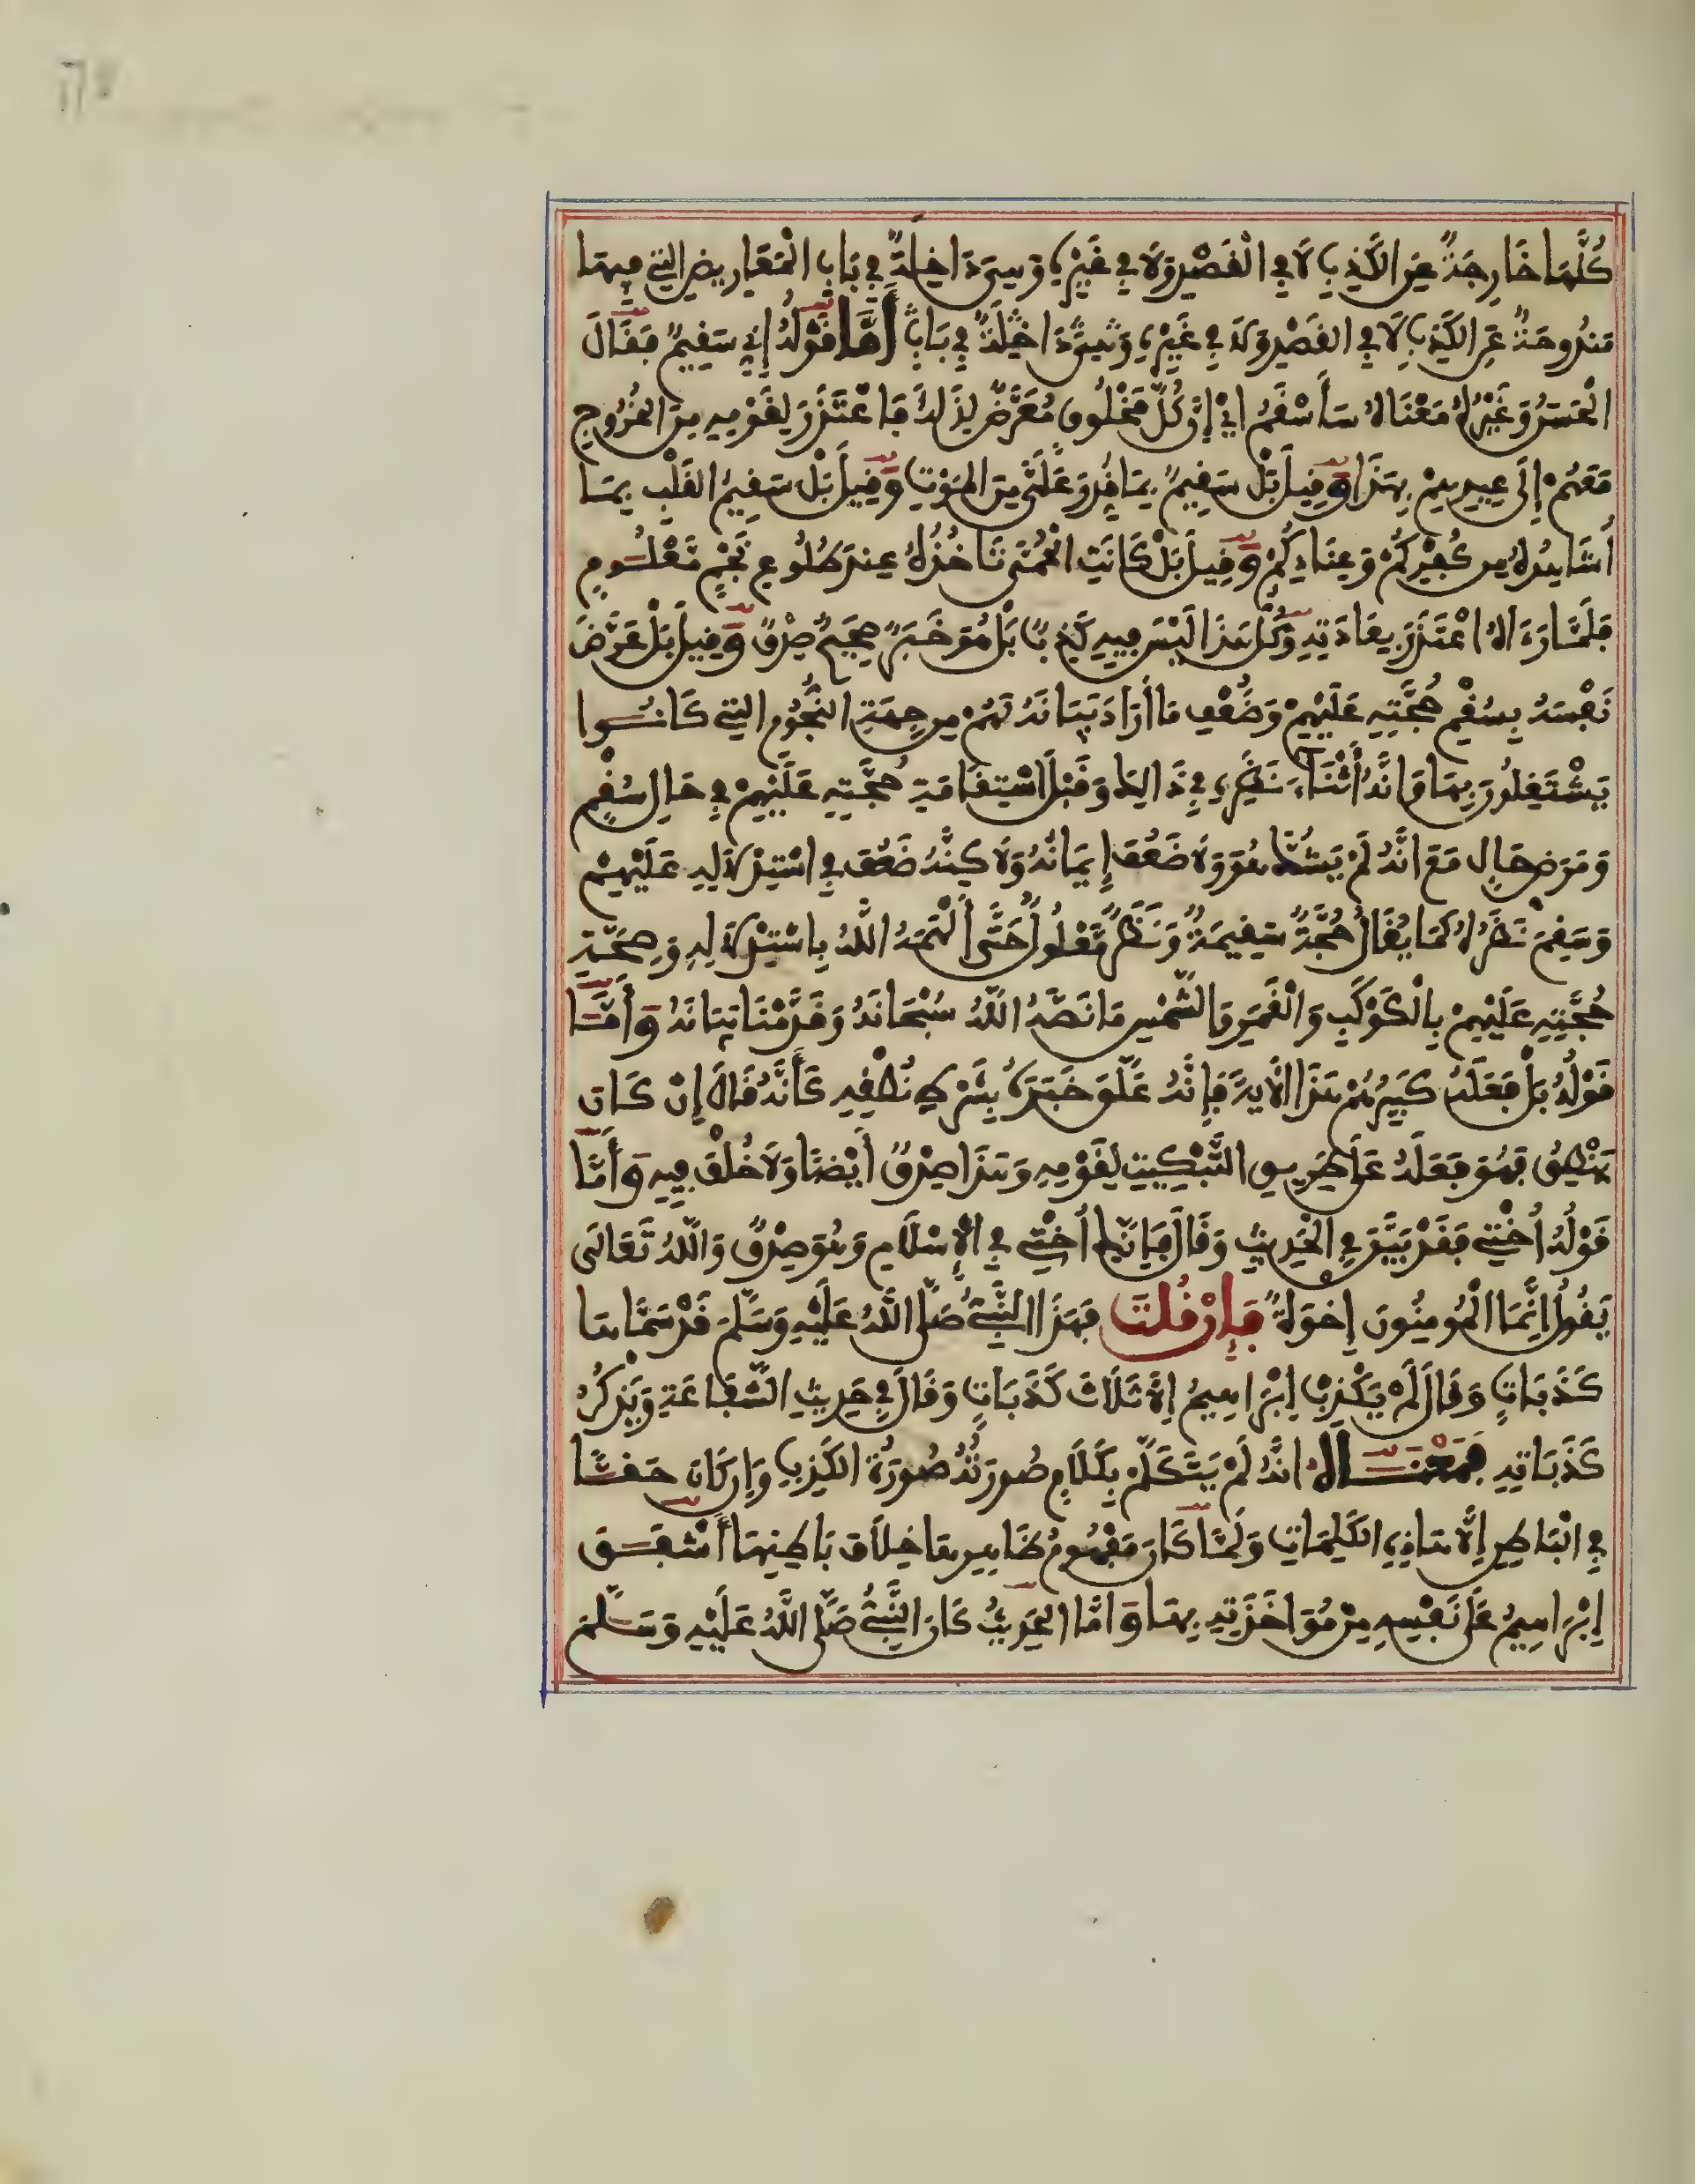 كُلَّهَا خَارِجَةٌ عَنِ الْكَذِبِ لَا فِي الْقَصْدِ وَلَا فِي غَيْرِهِ وَهِيَ دَاخِلَةٌ فِي بَابِ الْمَعَارِيضِ الَّتِي فِيهَا
مَنْدُوحَةٌ عَنِ الْكَذِبِ لَا فِي الْقَصْدِ وَلَا فِي غَيْرِهِ وَهِيَ دَاخِلَةٌ فِي بَابِ أَمَّا قَوْلُهُ إِنِّي سَقِيمٌ فَقَالَ
الْحَسَنُ وَغَيْرُهُ مَعْنَاهُ سَأَسْقَمُ أَيْ إِنَّ كُلَّ مَخْلُوقٍ مُعَرَّضٌ لِذَلِكَ فَاعْتَذَرَ لِقَوْمِهِ مِنَ الْخُرُوجِ
مَعَهُمْ إِلَى عِيدِهِمْ بِهَذَا وَقِيلَ بَلْ سَقِيمٌ بِمَا قُدِّرَ عَلَيَّ مِنَ الْمَوْتِ وَقِيلَ بَلْ سَقِيمُ الْقَلْبِ بِمَا
أُشَاهِدُهُ مِن كُفْرِكُمْ وَعِنَادِكُمْ وَقِيلَ بَلْ كَانَتِ الْحُمَّى تَاخُذُهُ عِندَ طُلُوعِ نَجْمٍ مَعْلُومٍ
فَلَمَّا رَءَاهُ اعْتَذَرَ بِعَادَتِهِ وَكُلُّ هَذَا لَيْسَ فِيهِ كَذِبٌ بَلْ هُوَ خَبَرٌ صَحِيحٌ صِدْقٌ وَقِيلَ بَلْ عَرَّضَ
نَفْسَهُ بِسُقْمِ حُجَّتِهِ عَلَيْهِمْ وَضُعْفِ مَا أَرَادَ بَيَانَهُ لَهُمْ مِن جِهَةِ النُّجُومِ الَّتِي كَانُوا
يَشْتَغِلُونَ بِهَا وَأَنَّهُ أَثْنَاءَ نَظَرِهِ فِي ذَالِكَ وَقَبْلَ اسْتِقَامَةِ حُجَّتِهِ عَلَيْهِمْ فِي حَالِ سُقْمٍ
وَمَرَضِ حَالٍ مَعَ أَنَّهُ لَمْ يَشُكَّ هُوَ وَلَا ضَعُفَ إِيمَانُهُ وَلَاكِنَّهُ ضَعُفَ فِي اسْتِدْلَالِهِ عَلَيْهِمْ
وَسَقِمَ نَظَرُهُ كَمَا يُقَالُ حُجَّةٌ سَقِيمَةٌ وَنَظَرٌ مَّعْلُولٌ حَتَّى أَلْهَمَهُ اللَّهُ بِاسْتِدْلَالِهِ وَصِحَّةِ
حُجَّتِهِ عَلَيْهِمْ بِالْكَوْكَبِ وَالْقَمَرِ وَالشَّمْسِ مَا نَصَّهُ اللَّهُ سُبْحَانَهُ وَقَدَّمْنَا بَيَانَهُ وَأَمَّا
قَوْلُهُ بَلْ فَعَلَهُ كَبِيرُهُمْ هَذَا الْآيَةَ فَإِنَّهُ عَلَّقَ خَبَرَهُ بِشَرْطِ نُطْقِهِ كَأَنَّهُ قَالَ إِنْ كَانَ
يَنْطِقُ فَهُوَ فَعَلَهُ عَلَى طَرِيقِ التَّبْكِيتِ لِقَوْمِهِ وَهَذَا صِدْقٌ أَيْضًا وَلَا خُلْفَ فِيهِ وَأَمَّا
قَوْلُهُ أُخْتِي فَقَدْ بَيَّنَ فِي الْحَدِيثِ وَقَالَ فَإِنَّكِ أُخْتِي فِي الْإِسْلَامِ وَهُوَ صِدْقٌ وَاللَّهُ تَعَالَى
يَقُولُ إِنَّمَا الْمُومِنُونَ إِخْوَةٌ فَإِنْ قُلْتَ فَهَذَا النَّبِيُّ صَلَّى اللَّهُ عَلَيْهِ وَسَلَّمَ قَدْ سَمَّاهَا
كَذَبَاتٍ وَقَالَ لَمْ يَكْذِبْ إِبْرَاهِيمُ إِلَّا ثَلَاثَ كَذَبَاتٍ وَقَالَ فِي حَدِيثِ الشَّفَاعَةِ وَيَذْكُرُ
كَذَبَاتِهِ فَمَعْنَاهُ أَنَّهُ لَمْ يَتَكَلَّمْ بِكَلَامٍ صُورَتُهُ صُورَةُ الْكَذِبِ وَإِن كَانَ حَقًّا
فِي الْبَاطِنِ إِلَّا هَاذِهِ الْكَلِمَاتِ وَلَمَّا كَانَ مَفْهُومُ ظَاهِرِهَا خِلَافَ بَاطِنِهَا أَشْفَقَ
إِبْرَاهِيمُ عَلَى نَفْسِهِ مِنْ مُؤَاخَذَتِهِ بِهَا وَأَمَّا الْحَدِيثُ كَانَ النَّبِيُّ صَلَّى اللَّهُ عَلَيْهِ وَسَلَّمَ